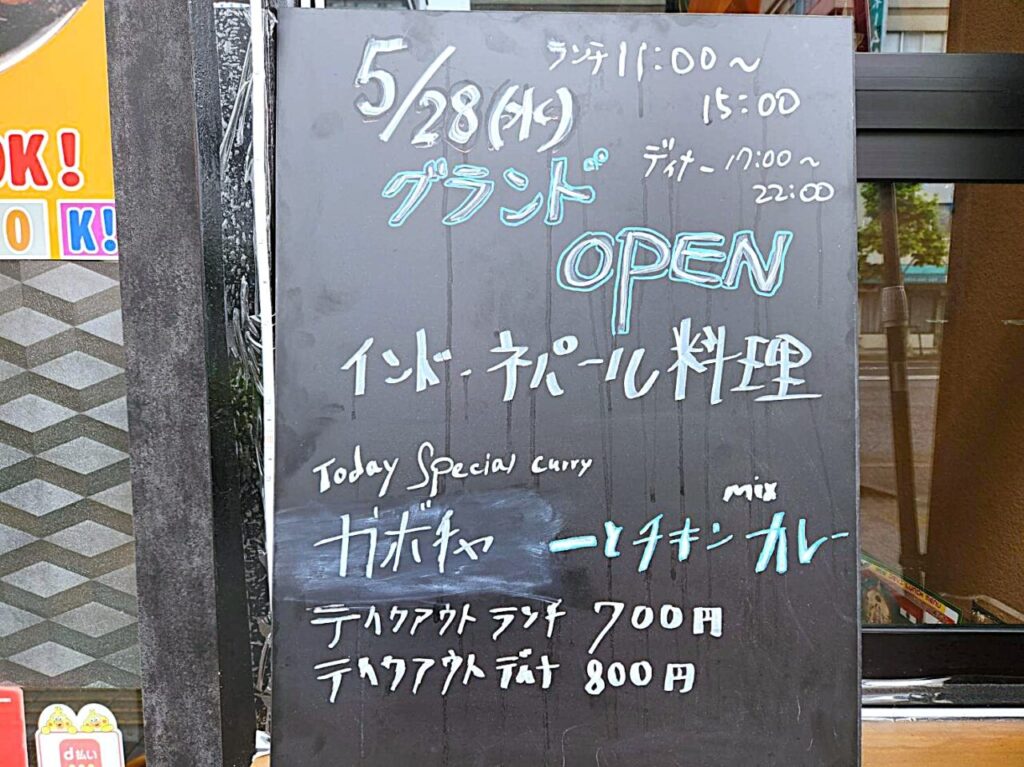 5/28(水)
ランチ 11:00～
15:00
グランド
ディナー 17:00～
22:00
OPEN
インド・ネパール料理
Today Special curry
mix
ガボチャ ーとチキンカレー
テイクアウト ランチ 700円
テイクアウト ディナ 800円
OK!
O K!
d払い